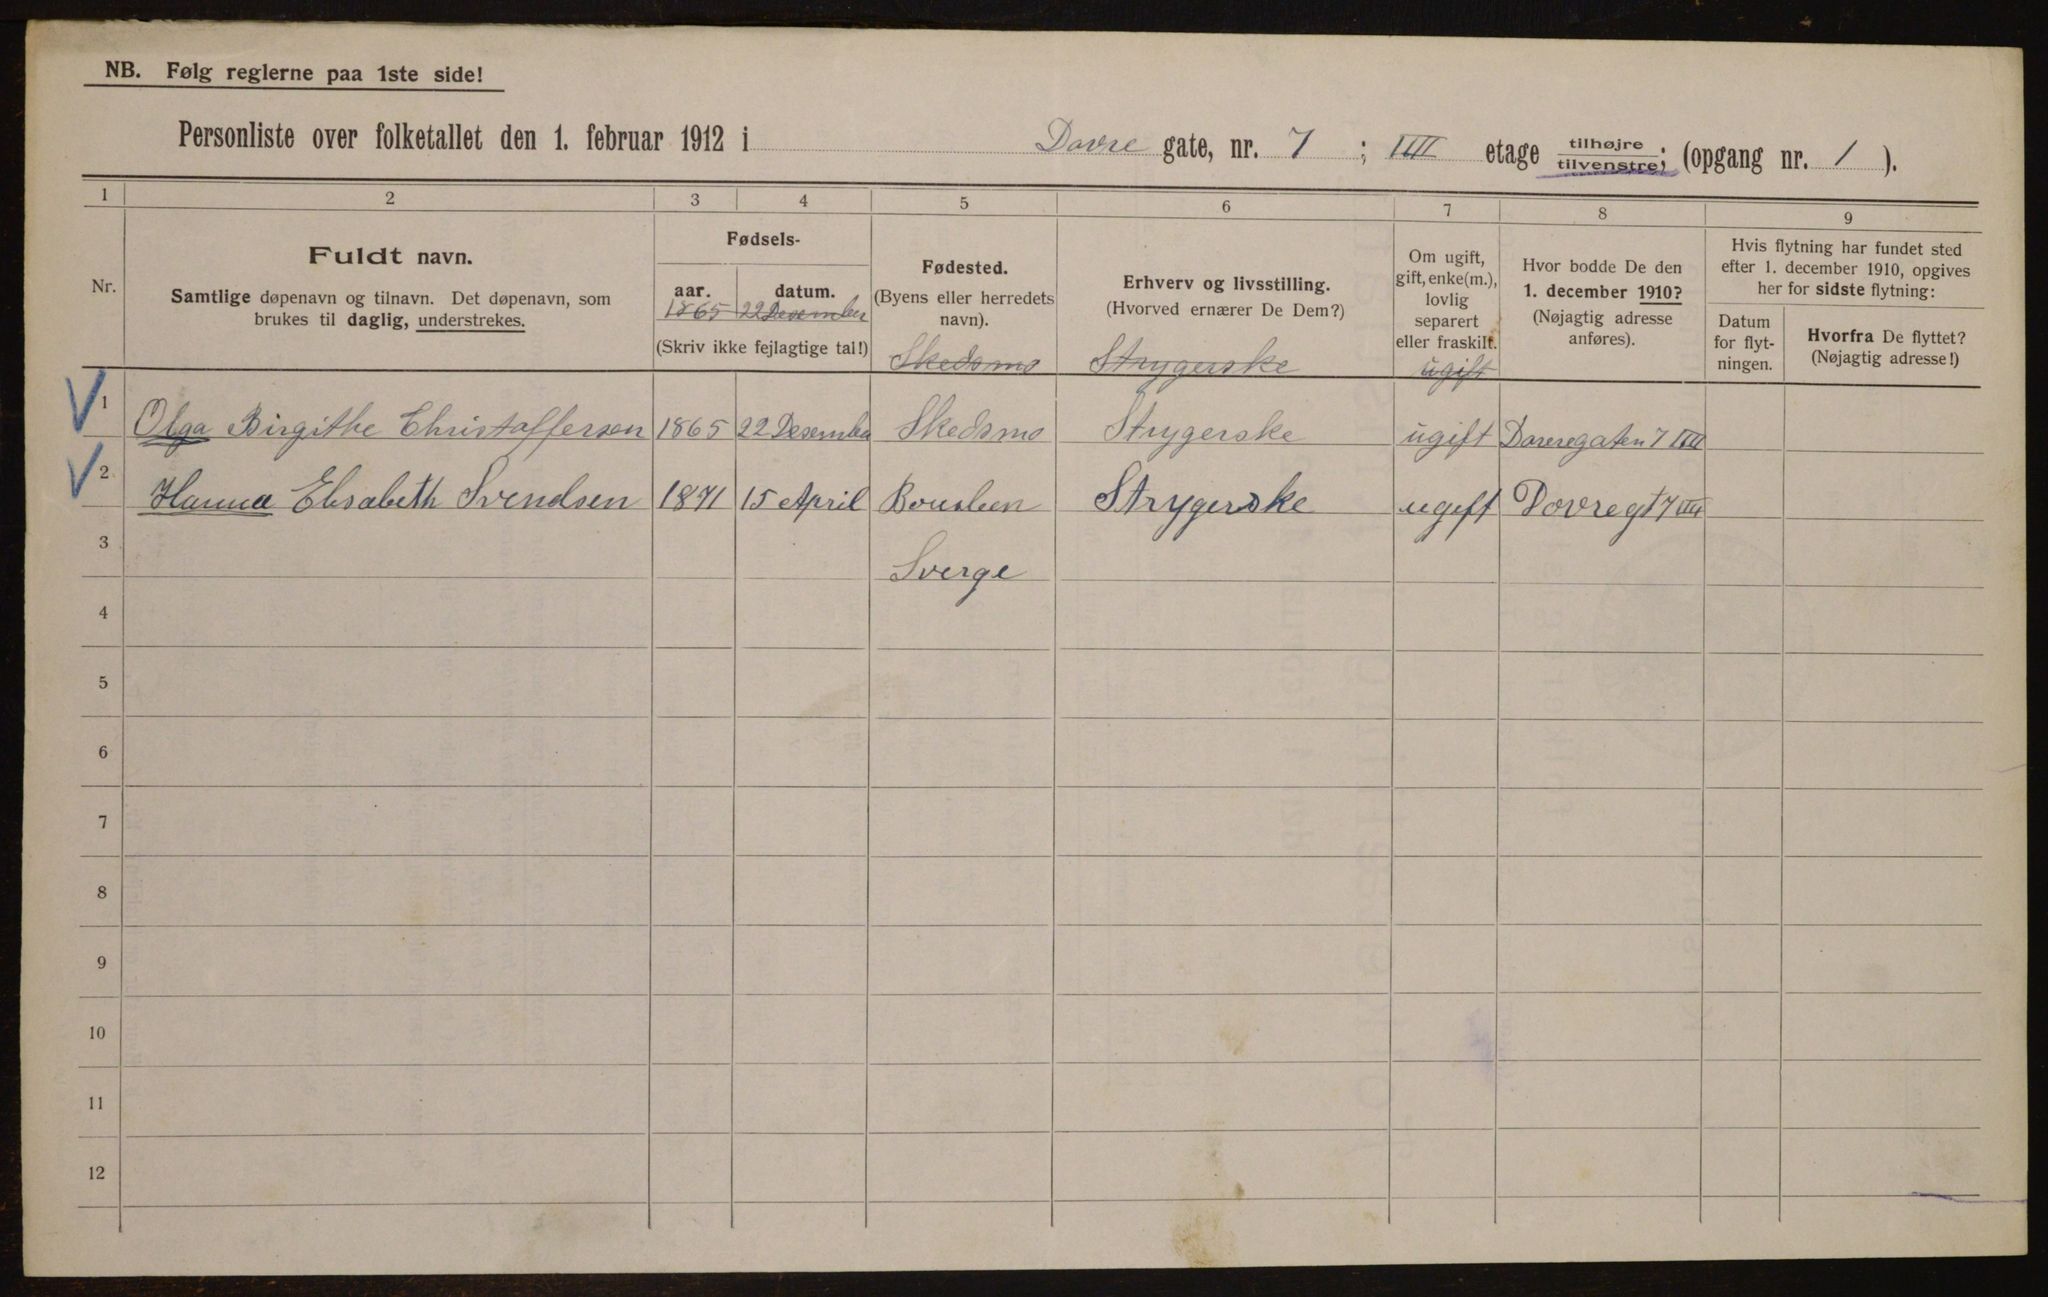 NB. Følg reglerne paa 1ste side!
Personliste over folketallet den 1. februar 1912 i Dovre gate, nr. 7 ; IIII etage tilhøjre tilvenstre; (opgang nr. 1 ).
1 2 3 4 5 6 7 8 9
Nr.
Fuldt navn.
Samtlige døpenavn og tilnavn. Det døpenavn, som
brukes til daglig, understrekes.
Fødsels-
aar. datum.
1865 22 Desember
(Skriv ikke fejlagtige tal!)
Fødested.
(Byens eller herredets
navn).
Skedsmo
Erhverv og livsstilling.
(Hvorved ernærer De Dem?)
Strygerske
Om ugift,
gift, enke(m.),
lovlig
separert
eller fraskilt.
ugift
Hvor bodde De den
1. december 1910?
(Nøjagtig adresse
anføres).
Hvis flytning har fundet sted
efter 1. december 1910, opgives
her for sidste flytning:
Datum
for flyt-
ningen.
Hvorfra De flyttet?
(Nøjagtig adresse!)
1 Olga Birgithe Christoffersen 1865 22 Desember Skedsmo Strygerske ugift Dovregaten 7 IIII
2 Hanna Elisabeth Svendsen 1871 15 April Strygerske ugift Dovregt 7 IIII
3 Sverge
4
5
6
7
8
9
10
11
12